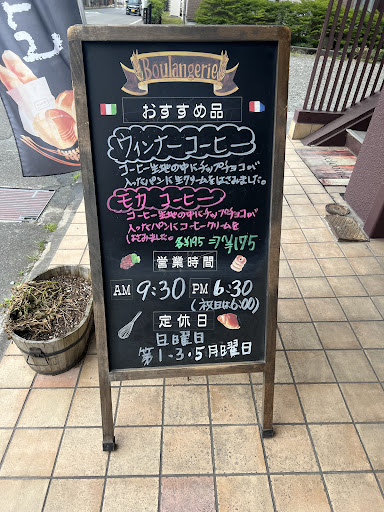 Boulangerie
おすすめ品
ウィンナーコーヒー
コーヒー生地の中にチップチョコが
入ったパンに生クリームをはさみました。
モカ コーヒー
コーヒー生地の中にチップチョコが
入ったパンにコーヒークリームを
はさみました。 各¥195→¥175
営業時間
AM 9:30 PM 6:30
(祝日は6:00)
定休日
日曜日
第1・3・5月曜日